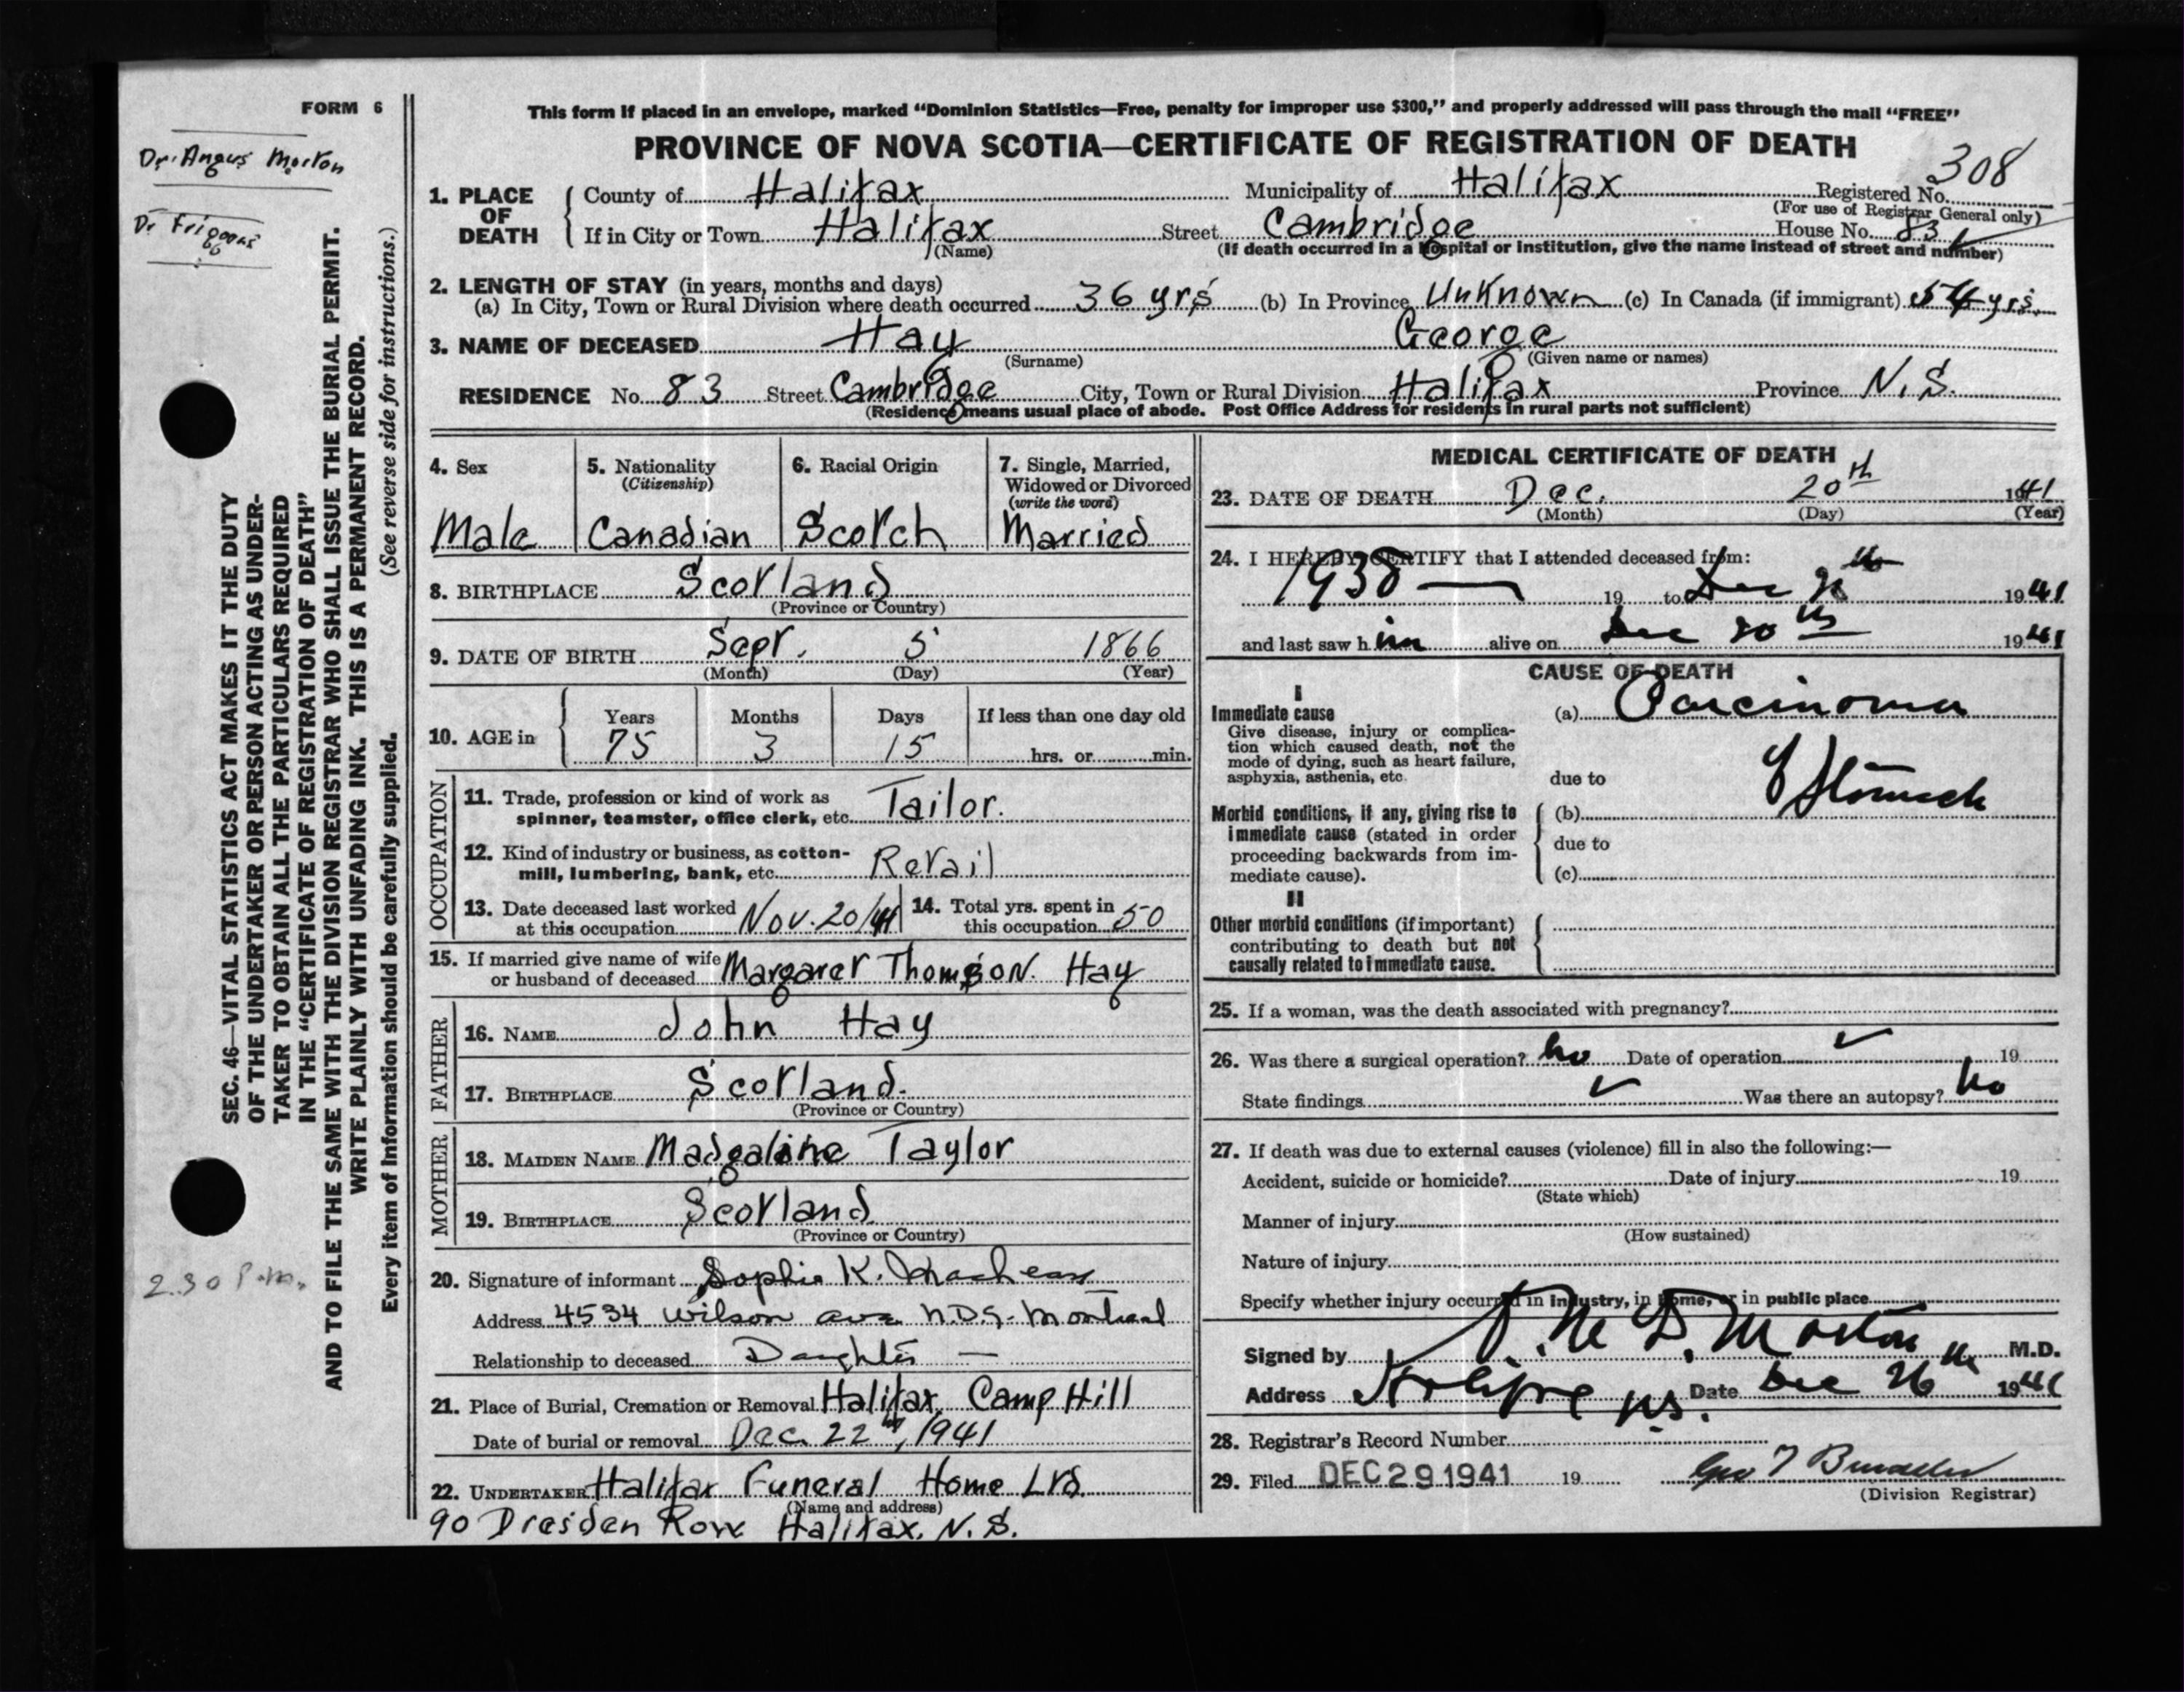 FORM 6
Dr. Angus Morton
Dr
SEC. 46—VITAL STATISTICS ACT MAKES IT THE DUTY
OF THE UNDERTAKER OR PERSON ACTING AS UNDER-
TAKER TO OBTAIN ALL THE PARTICULARS REQUIRED
IN THE "CERTIFICATE OF REGISTRATION OF DEATH"
AND TO FILE THE SAME WITH THE DIVISION REGISTRAR WHO SHALL ISSUE THE BURIAL PERMIT.
WRITE PLAINLY WITH UNFADING INK. THIS IS A PERMANENT RECORD.
Every item of Information should be carefully supplied. (See reverse side for instructions.)
2.30 P.m.
This form if placed in an envelope, marked "Dominion Statistics—Free, penalty for improper use $300," and properly addressed will pass through the mail "FREE"
PROVINCE OF NOVA SCOTIA—CERTIFICATE OF REGISTRATION OF DEATH
308
1. PLACE OF DEATH County of Halifax Municipality of Halifax Registered No.
(For use of Registrar General only)
If in City or Town Halifax Street Cambridge House No. 83
(Name) (If death occurred in a hospital or institution, give the name instead of street and number)
2. LENGTH OF STAY (in years, months and days)
(a) In City, Town or Rural Division where death occurred 36 yrs (b) In Province Unknown (c) In Canada (if immigrant) 54 yrs.
3. NAME OF DECEASED Hay George
(Surname) (Given name or names)
RESIDENCE No. 83 Street Cambridge City, Town or Rural Division Halifax Province N.S.
(Residence means usual place of abode. Post Office Address for residents in rural parts not sufficient)
4. Sex
Male
5. Nationality
(Citizenship)
Canadian
6. Racial Origin
Scotch
7. Single, Married,
Widowed or Divorced
(write the word)
Married
8. BIRTHPLACE Scotland
(Province or Country)
9. DATE OF BIRTH Sept. 5 1866
(Month) (Day) (Year)
10. AGE in
Years Months Days If less than one day old
75 3 15 hrs. or min.
OCCUPATION
11. Trade, profession or kind of work as
spinner, teamster, office clerk, etc. Tailor.
12. Kind of industry or business, as cotton-
mill, lumbering, bank, etc. Retail
13. Date deceased last worked
at this occupation Nov. 20/41
14. Total yrs. spent in
this occupation 50
15. If married give name of wife
or husband of deceased Margaret Thompson Hay
FATHER
16. NAME John Hay
17. BIRTHPLACE Scotland.
(Province or Country)
MOTHER
18. MAIDEN NAME Madgaline Taylor
19. BIRTHPLACE Scotland
(Province or Country)
20. Signature of informant Sophie K. MacLean
Address 4534 Wilson ave N.D.G. Montreal
Relationship to deceased Daughter —
21. Place of Burial, Cremation or Removal Halifax, Camp Hill
Date of burial or removal Dec. 22nd, 1941
22. UNDERTAKER Halifax Funeral Home Ltd.
(Name and address)
90 Dresden Row Halifax, N.S.
MEDICAL CERTIFICATE OF DEATH
23. DATE OF DEATH Dec. 20th 1941
(Month) (Day) (Year)
24. I HEREBY CERTIFY that I attended deceased from:
1938 — 19 to Dec 20th 1941
and last saw him alive on Dec 20th 1941
CAUSE OF DEATH
I
Immediate cause
Give disease, injury or complica-
tion which caused death, not the
mode of dying, such as heart failure,
asphyxia, asthenia, etc.
(a) Carcinoma
due to
of Stomach
Morbid conditions, if any, giving rise to
immediate cause (stated in order
proceeding backwards from im-
mediate cause).
(b)
due to
(c)
II
Other morbid conditions (if important)
contributing to death but not
causally related to immediate cause.
25. If a woman, was the death associated with pregnancy?
26. Was there a surgical operation? no Date of operation ✓ 19
State findings ✓ Was there an autopsy? no
27. If death was due to external causes (violence) fill in also the following:—
Accident, suicide or homicide? Date of injury 19
(State which)
Manner of injury
(How sustained)
Nature of injury
Specify whether injury occurred in Industry, in home, or in public place
Signed by Morton M.D.
Address Halifax N.S. Date Dec 26th 1941
28. Registrar's Record Number
29. Filed DEC 29 1941 19
(Division Registrar)